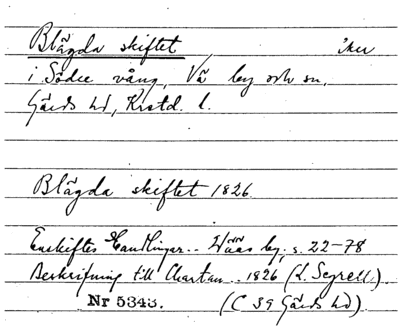 Blägda skiftet, åker
i Södra vång, Vä by och sn,
Gärds hd, Kristd. l.
Blägda skiftet 1826
Enskiftes Handlingar .. Wääs by, s. 22-78
Beskrifning till Chartan .. 1826 (L. Segrell).
Nr 5343. (C 39 Gärds hd).